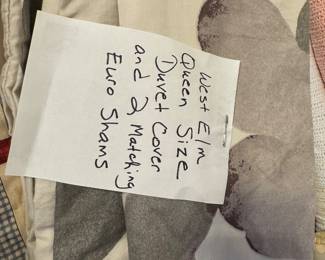 West Elm
Queen Size
Duvet Cover
and 2 Matching
Euro Shams